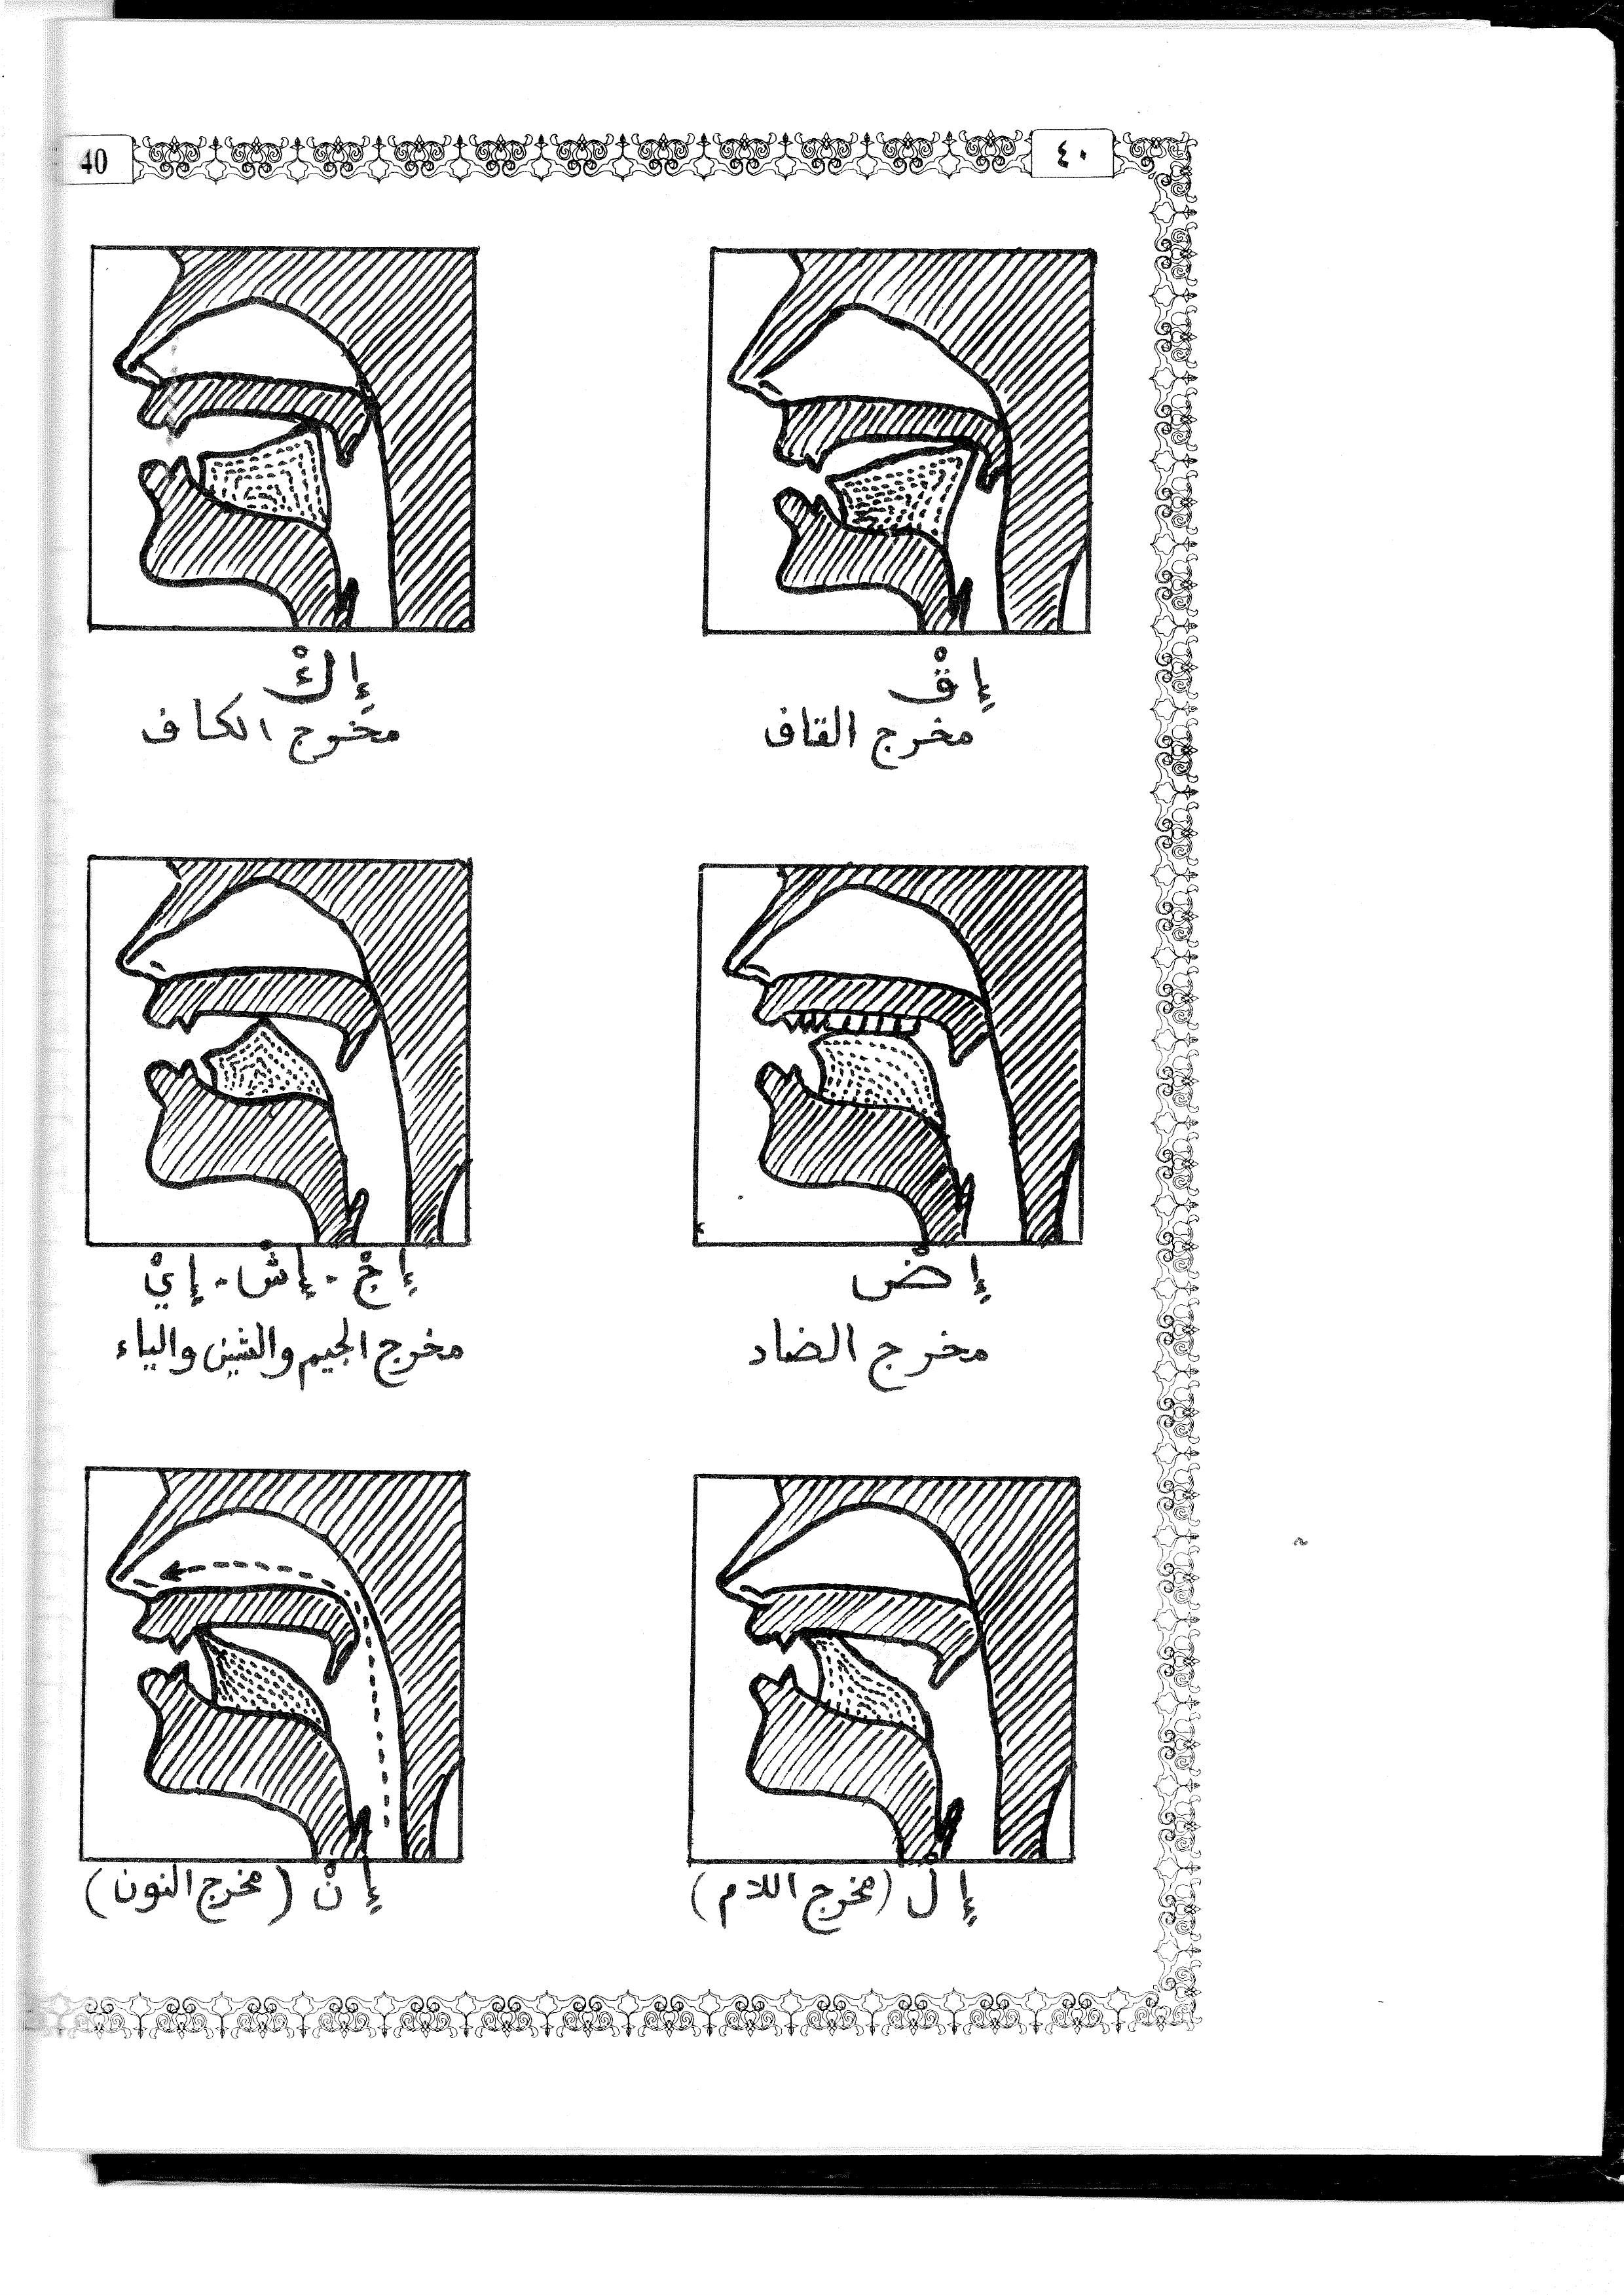 ٤٠
40
إِقْ
مخرج القاف
إِكْ
مخرج الكاف
إِضْ
مخرج الضاد
إِجْ - إِشْ - إِيْ
مخرج الجيم والشين والياء
إِلْ (مخرج اللام)
إِنْ (مخرج النون)